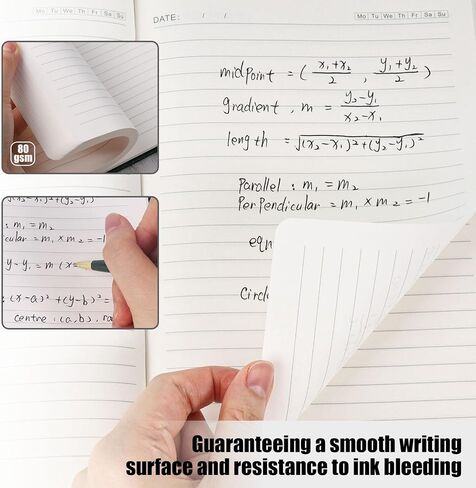 Mo Tu We Th Fr Sa Su
DATE: / /
Mo Tu We Th Fr Sa Su
midpoint = ( x₁+x₂ / 2 , y₁+y₂ / 2 )
gradient , m = y₂-y₁ / x₂-x₁
length = √(x₂-x₁)²+(y₂-y₁)²
Parallel : m₁ = m₂
Perpendicular = m₁ × m₂ = -1
eqn
Circle
80
gsm
√(x₂-x₁)²+(y₂-y₁)
: m₁ = m₂
cular = m₁ × m₂ = -1
y-y₁ = m (x
: (x-a)² + (y-b)² =
centre : (a,b), ra
Guaranteeing a smooth writing
surface and resistance to ink bleeding